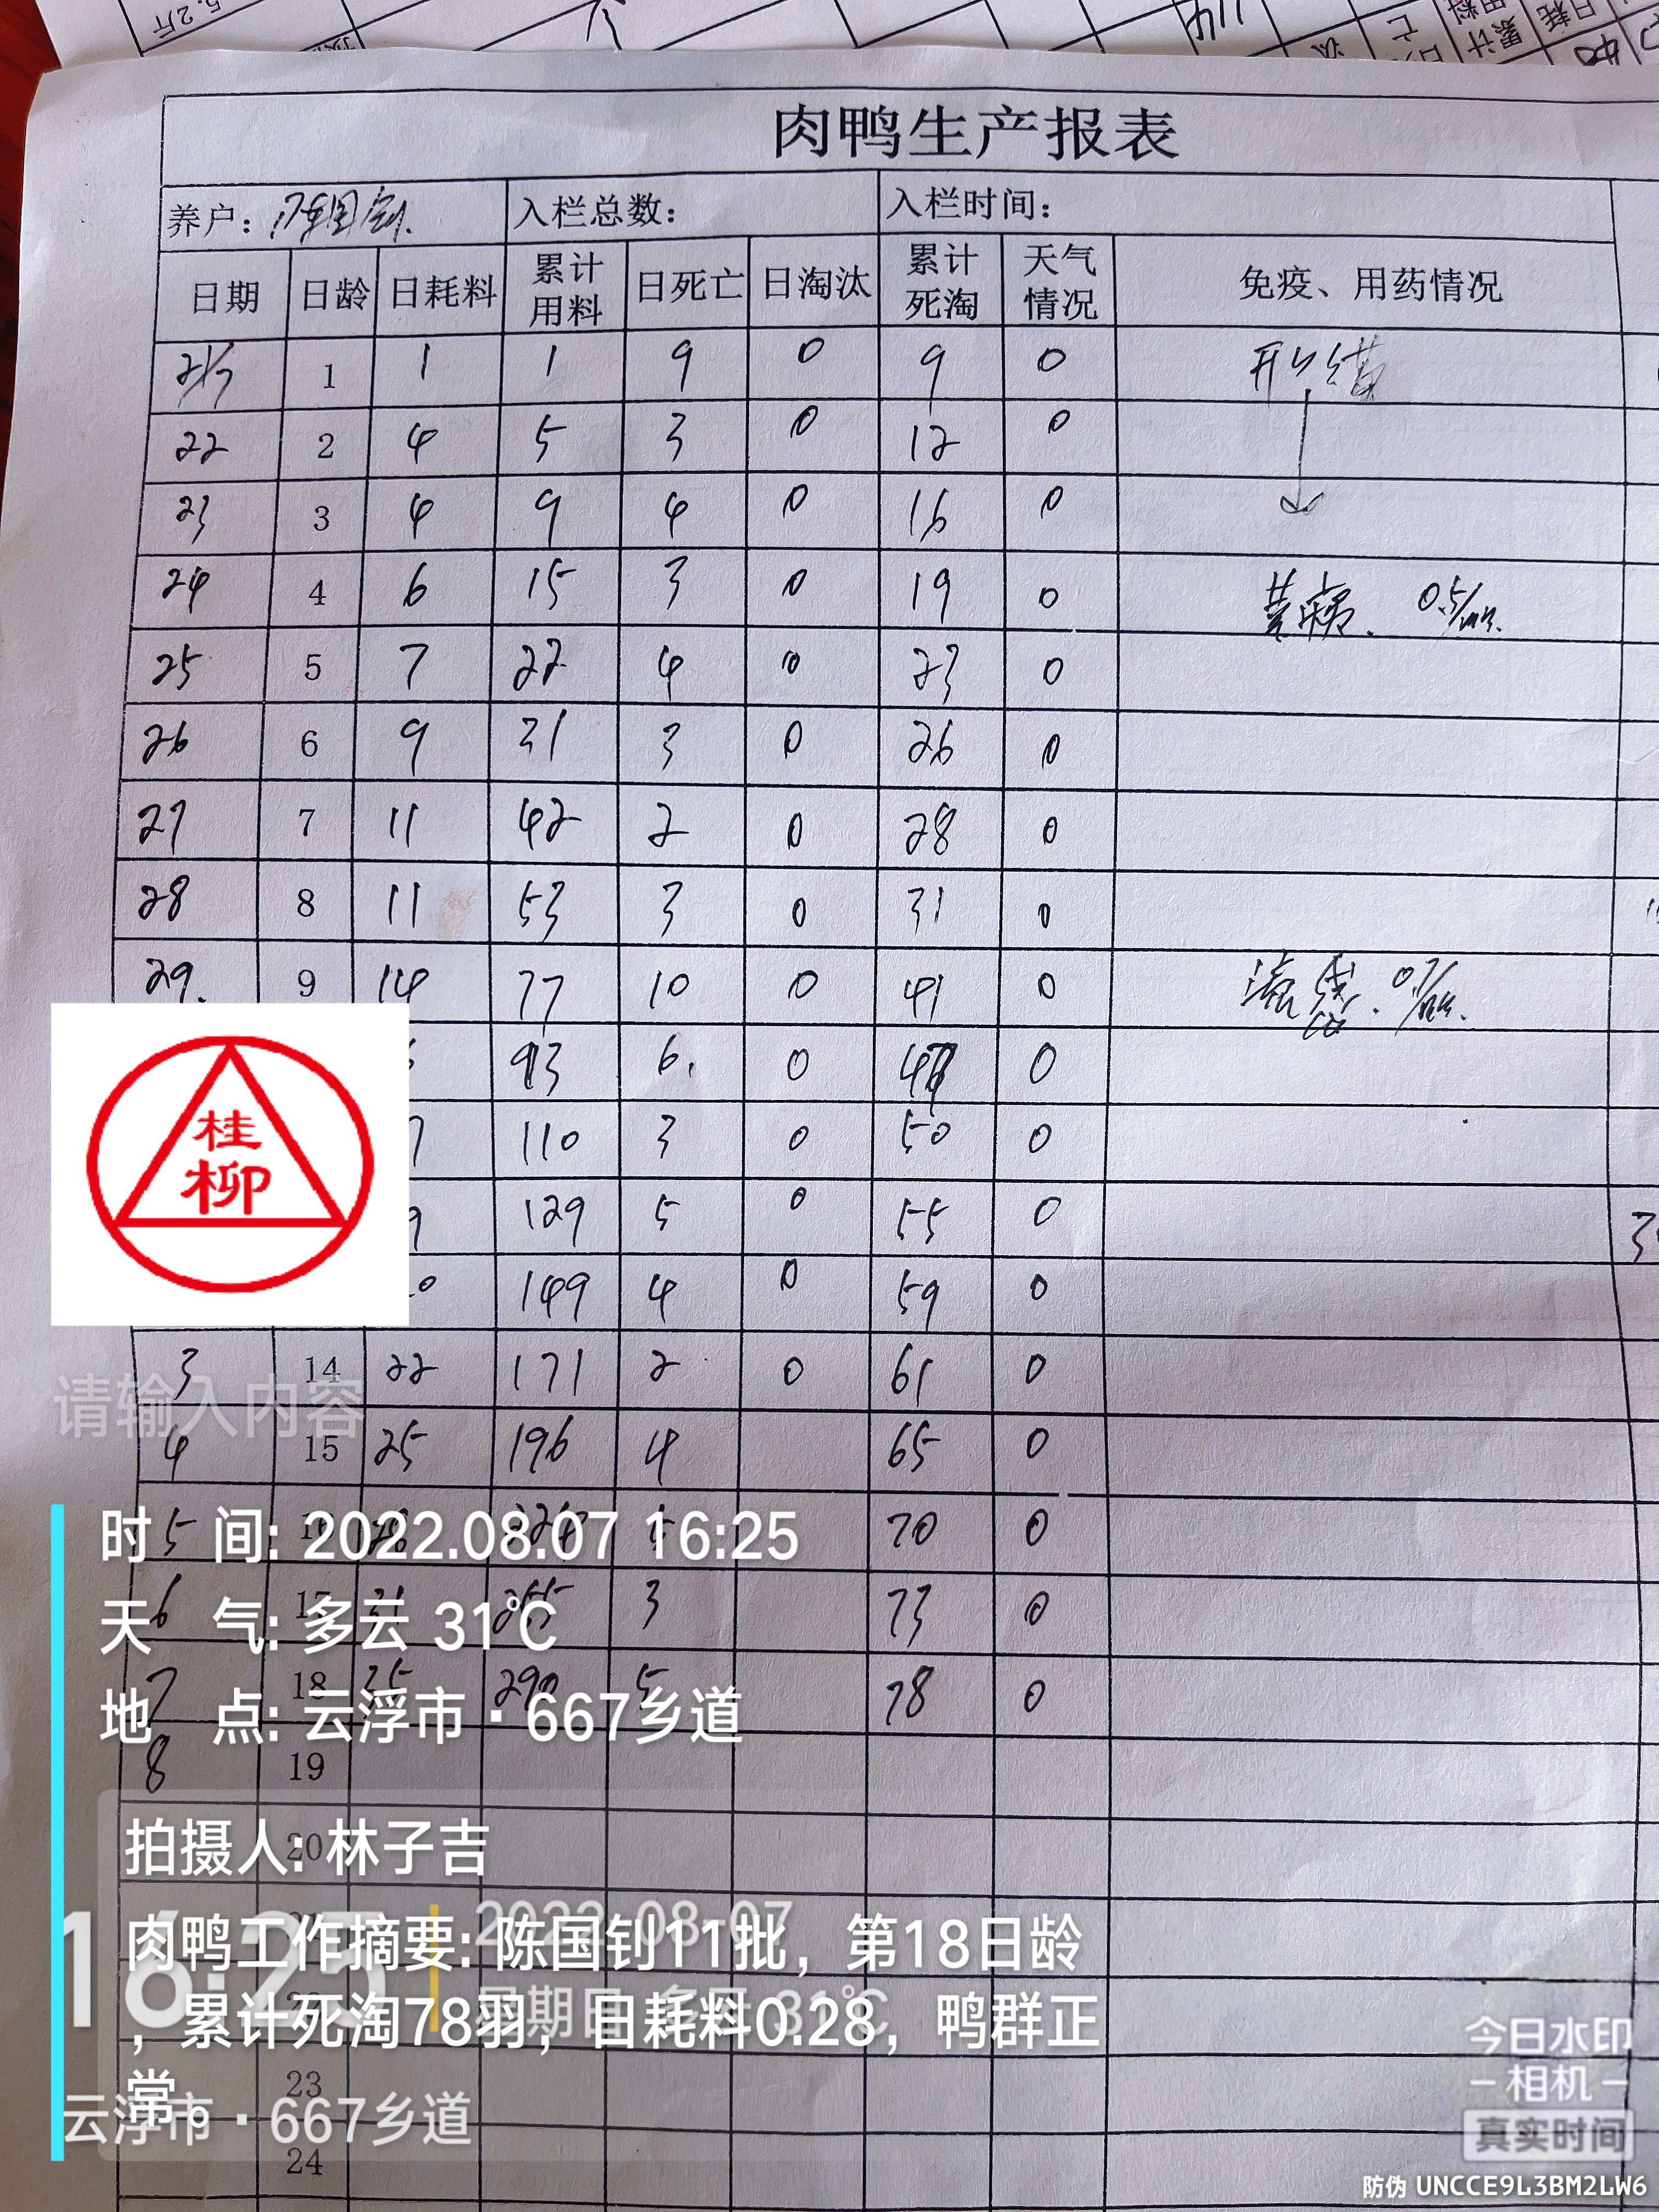 肉鸭生产报表
养户: 入栏总数: 入栏时间:
日期 日龄 日耗料 累计用料 日死亡 日淘汰 累计死淘 天气情况 免疫、用药情况
21/7 1 1 1 9 0 9 0 开口
22 2 4 5 3 0 12 0
23 3 4 9 4 0 16 0
24 4 6 15 3 0 19 0 0.5/
25 5 7 22 4 0 23 0
26 6 9 31 3 0 26 0
27 7 11 42 2 0 28 0
28 8 11 53 3 0 31 0
29. 9 14 77 10 0 41 0
93 6. 0 47 0
110 3 0 50 0
129 5 0 55 0
149 4 0 59 0
3 14 22 171 2 0 61 0
4 15 25 196 4 65 0
5 16 28 224 5 70 0
6 17 31 255 3 73 0
7 18 35 290 5 78 0
8 19
20
23
24
桂柳
请输入内容
时 间: 2022.08.07 16:25
天 气: 多云 31℃
地 点: 云浮市·667乡道
拍摄人: 林子吉
肉鸭工作摘要: 陈国钊11批，第18日龄
，累计死淘78羽，日耗料0.28，鸭群正
常。
16:25
2022-08-07
星期日 多云 31℃
云浮市·667乡道
今日水印
相机
真实时间
防伪 UNCCE9L3BM2LW6